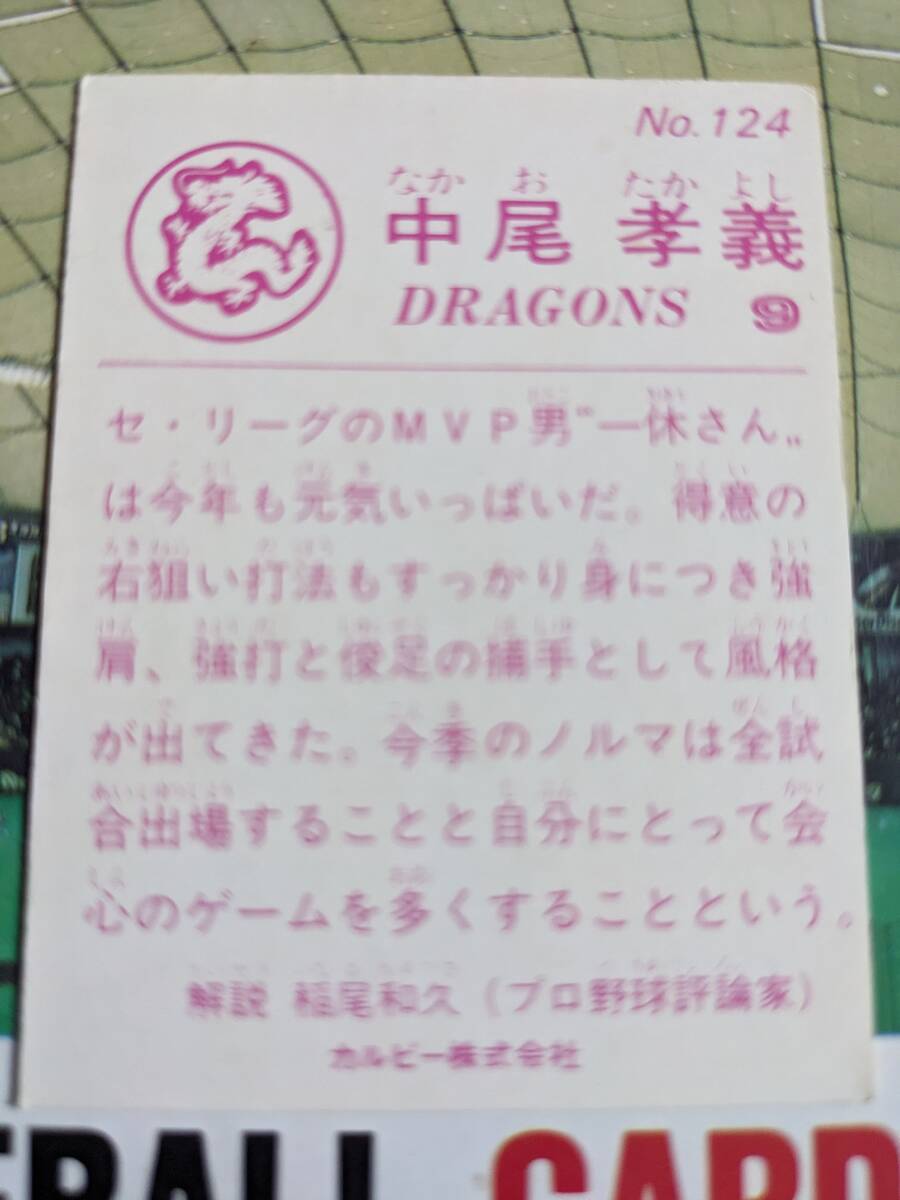 No.124
なか お たか よし
中尾 孝義
DRAGONS 9
セ・リーグのMVP男"一休さん"
は今年も元気いっぱいだ。得意の
右狙い打法もすっかり身につき強
肩、強打と俊足の捕手として風格
が出てきた。今季のノルマは全試
合出場することと自分にとって会
心のゲームを多くすることという。
解説 稲尾和久(プロ野球評論家)
カルビー株式会社
BALL CARD